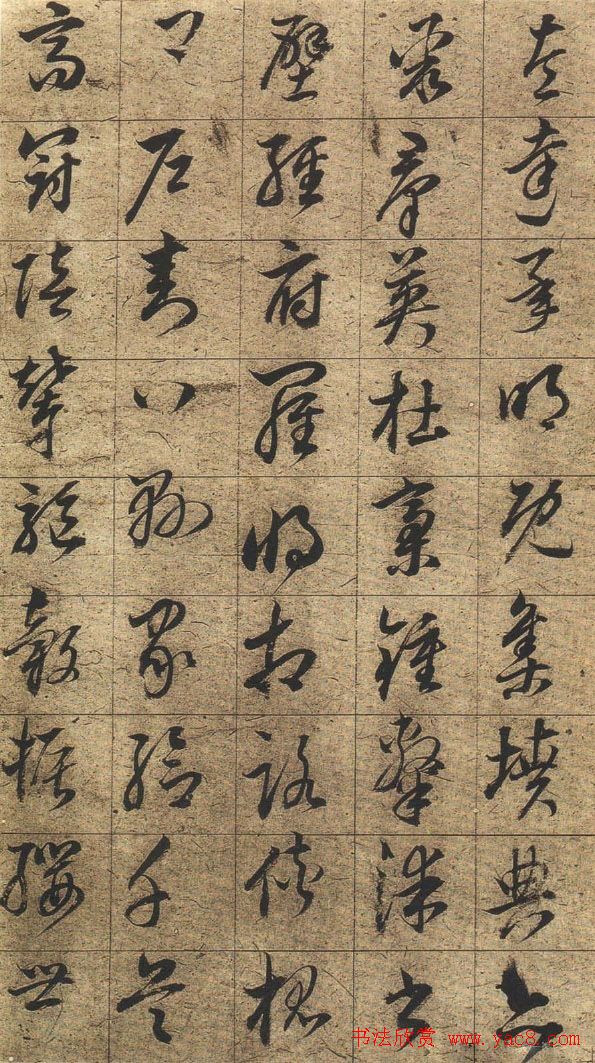 左達承明既集墳典亦
聚羣英杜稾鍾隸漆書
壁經府羅將相路俠槐
卿戶封八縣家給千兵
高冠陪輦驅轂振纓世
书法欣赏 www.yac8.com